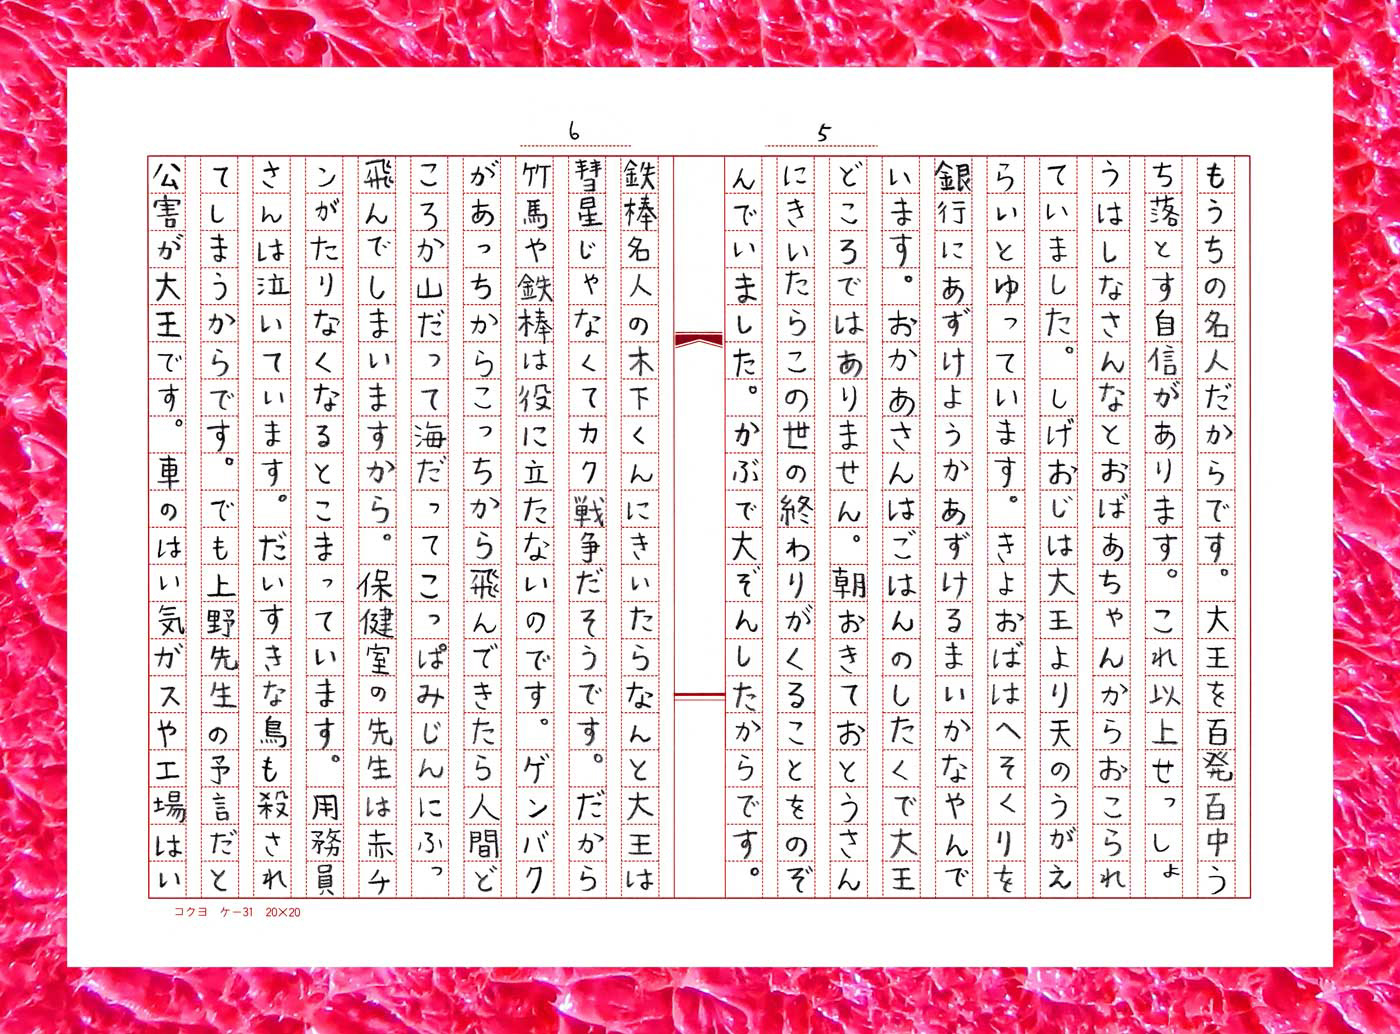 5
もうちの名人だからです。大王を百発百中う
ち落とす自信があります。これ以上せっしょ
うはしなさんなとおばあちゃんからおこられ
ていました。しげおじは大王より天のうがえ
らいとゆっています。きよおばはへそくりを
銀行にあずけようかあずけるまいかなやんで
います。おかあさんはごはんのしたくで大王
どころではありません。朝おきておとうさん
にきいたらこの世の終わりがくることをのぞ
んでいました。かぶで大ぞんしたからです。
6
鉄棒名人の木下くんにきいたらなんと大王は
彗星じゃなくてカク戦争だそうです。だから
竹馬や鉄棒は役に立たないのです。ゲンバク
があっちからこっちから飛んできたら人間ど
ころか山だって海だってこっぱみじんにふっ
飛んでしまいますから。保健室の先生は赤チ
ンがたりなくなるとこまっています。用務員
さんは泣いています。だいすきな鳥も殺され
てしまうからです。でも上野先生の予言だと
公害が大王です。車のはい気ガスや工場はい
コクヨ ケー31 20×20